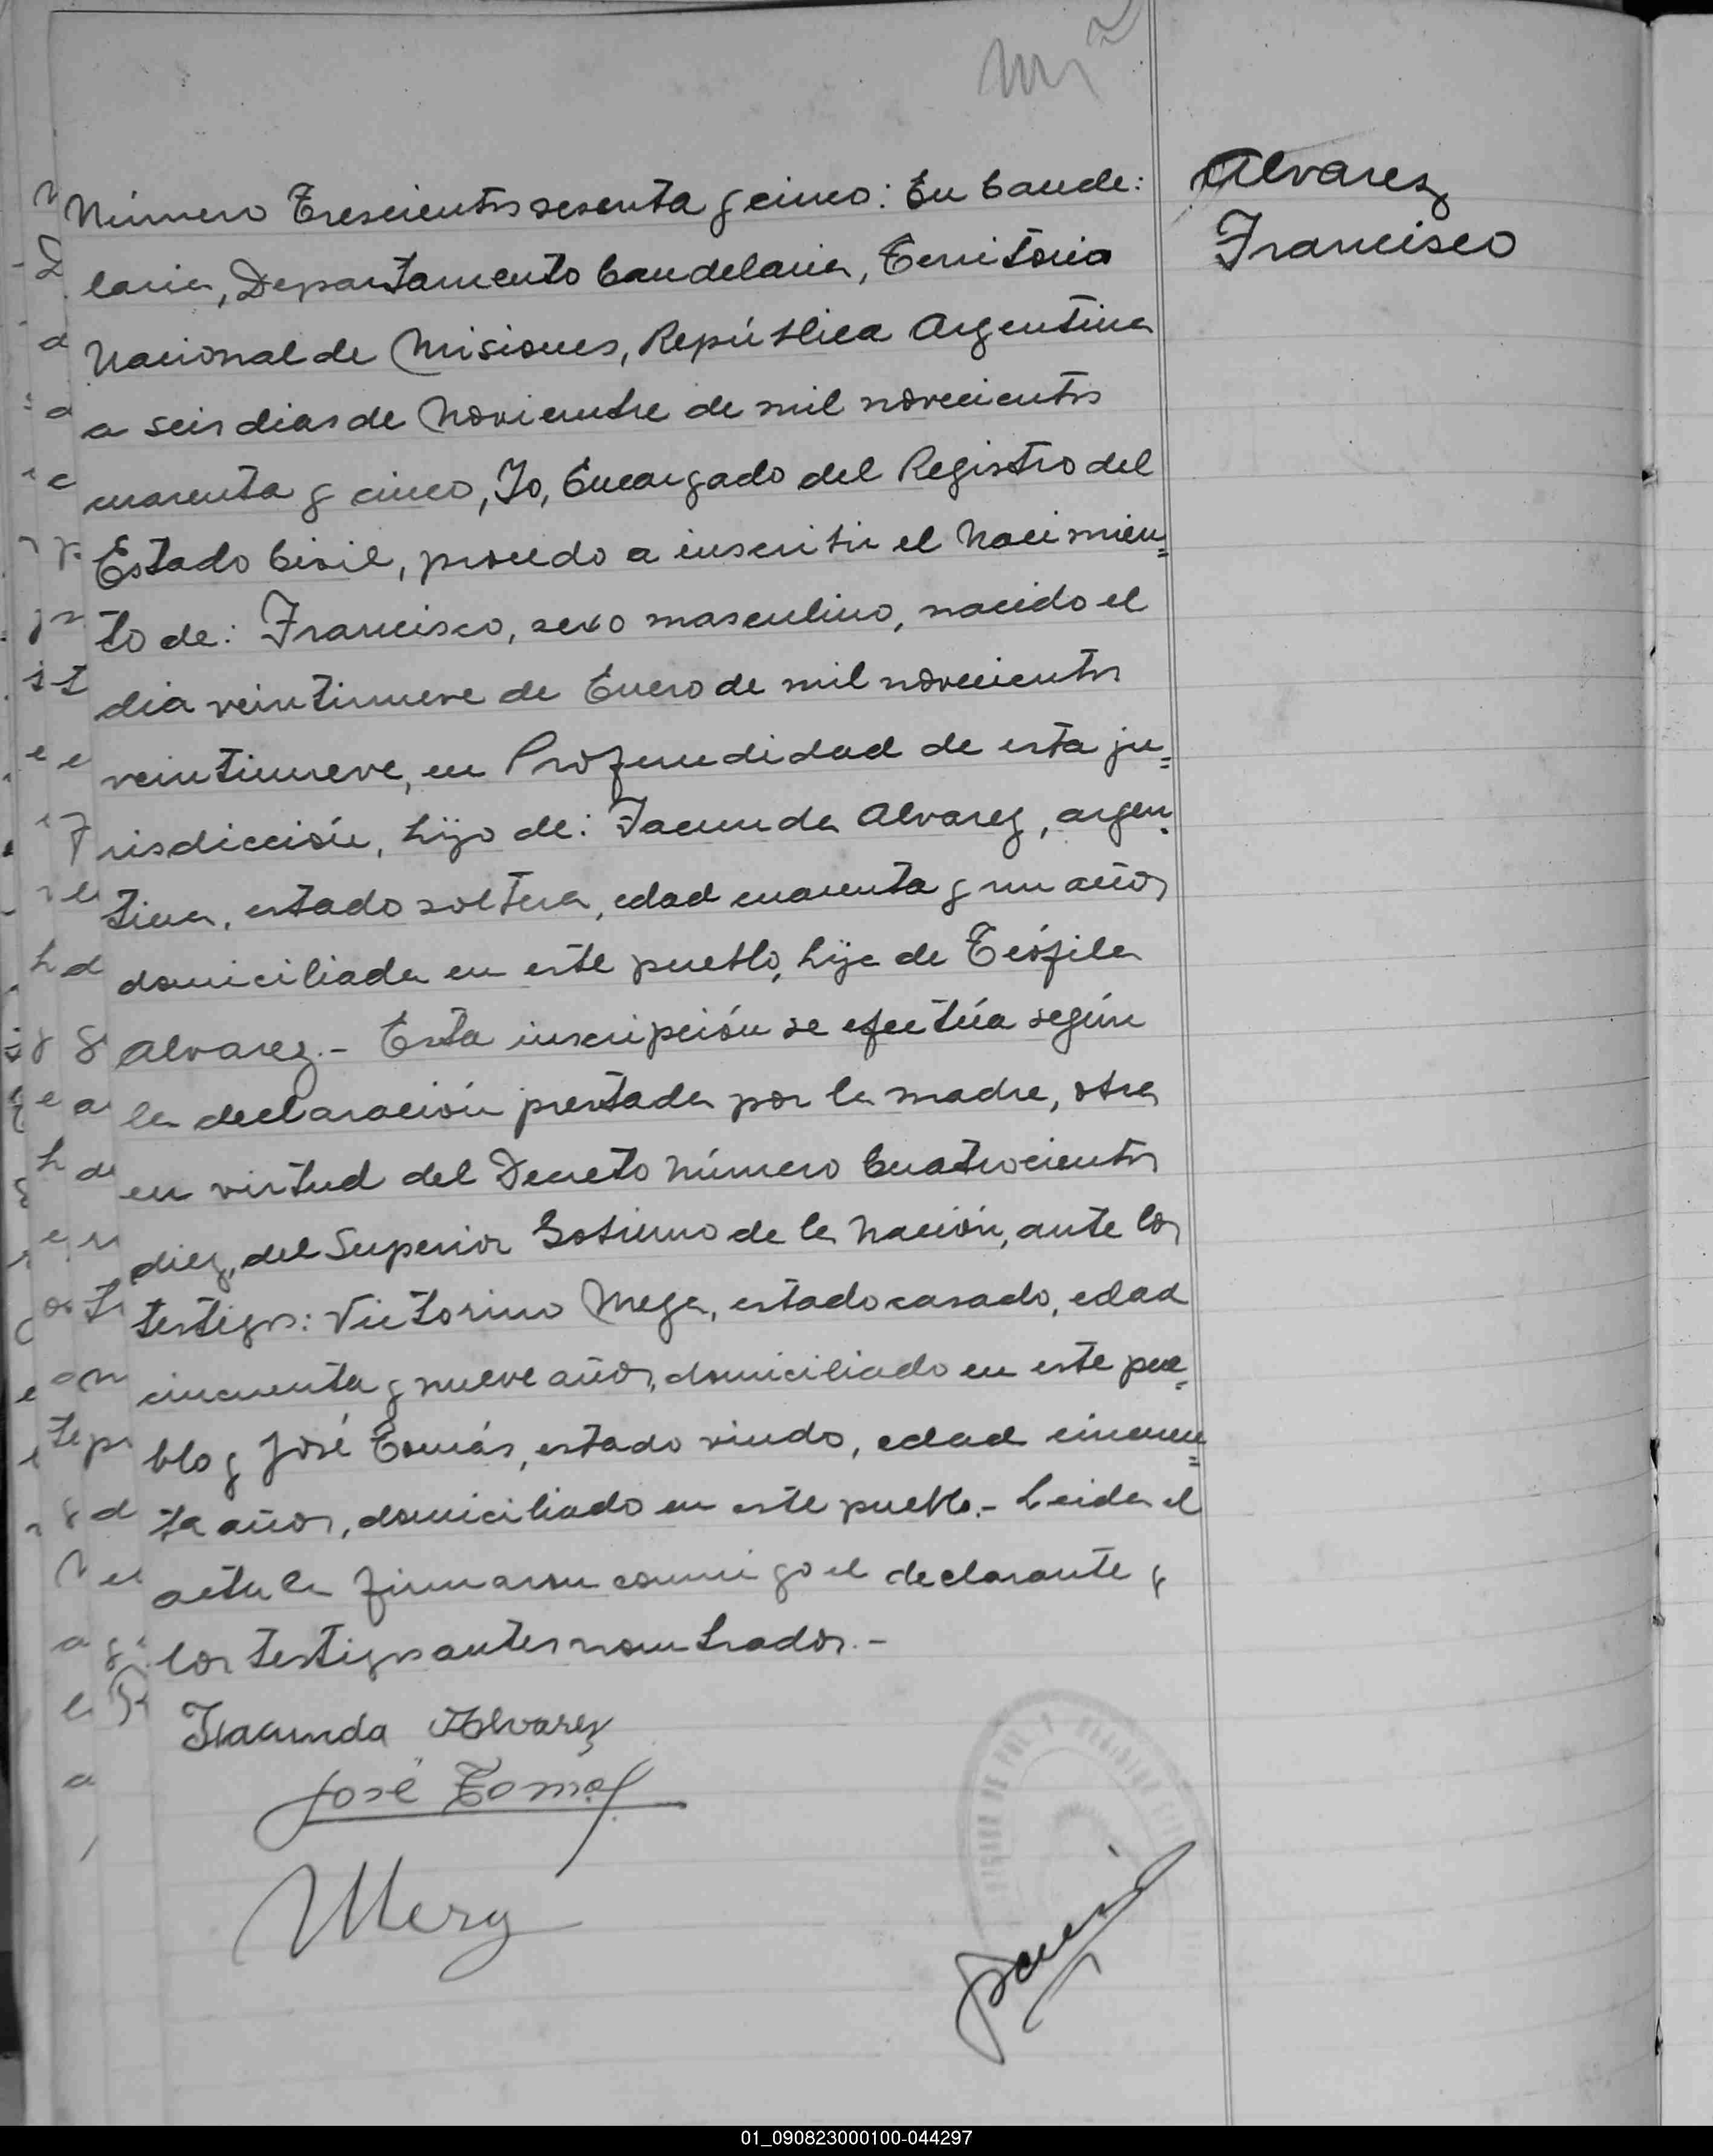 Alvarez
Francisco
Número Trescientos sesenta y cinco: En Cande:
laria, Departamento Candelaria, Territorio
Nacional de Misiones, República Argentina
a seis dias de Noviembre de mil novecientos
cuarenta y cinco, Yo, Encargado del Registro del
Estado Civil, procedo a inscribir el Nacimien=
to de: Francisco, sexo masculino, nacido el
dia veintinueve de Enero de mil novecientos
veintinueve, en Profundidad de esta ju=
risdicción, hijo de: Facunda Alvarez, argen=
tina, estado soltera, edad cuarenta y un años
domiciliada en este pueblo, hija de Teófila
Alvarez.- Esta inscripción se efectúa según
la declaración prestada por la madre, otra
en virtud del Decreto Número Cuatrocientos
diez, del Superior Gobierno de la Nación, ante los
testigos: Victorino Meza, estado casado, edad
cincuenta y nueve años, domiciliado en este pue=
blo y José Tomás, estado viudo, edad cincuen=
ta años, domiciliado en este pueblo.- Leida el
acta la firmaron conmigo el declarante y
los testigos antes nombrados.-
Facunda Alvarez
José Tomás
VMeza
01_090823000100-044297